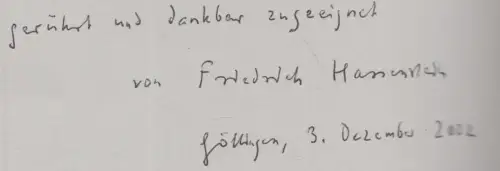 gerührt und dankbar zugeeignet
von Friedrich Hassenstein
Göttingen, 3. Dezember 2002